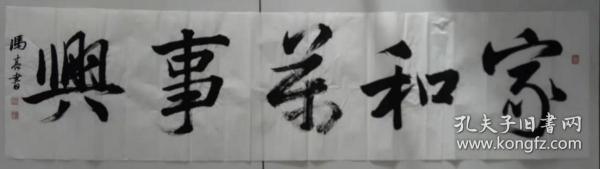 家和萬事興
馮喜書
孔夫子旧書网
www.kongfz.com